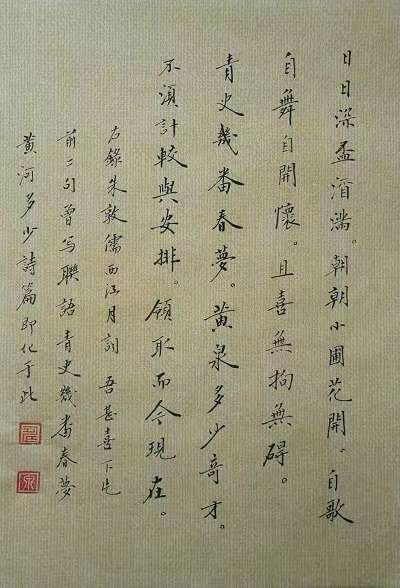 日日深盃酒滿。朝朝小圃花開。自歌
自舞自開懷。且喜無拘無碍。
青史幾番春夢。黃泉多少奇才。
不須計較與安排。領取而今現在。
右錄朱敦儒西江月詞 吾甚喜下片
前二句曾写聯語青史幾番春夢
黃河多少詩篇即化于此